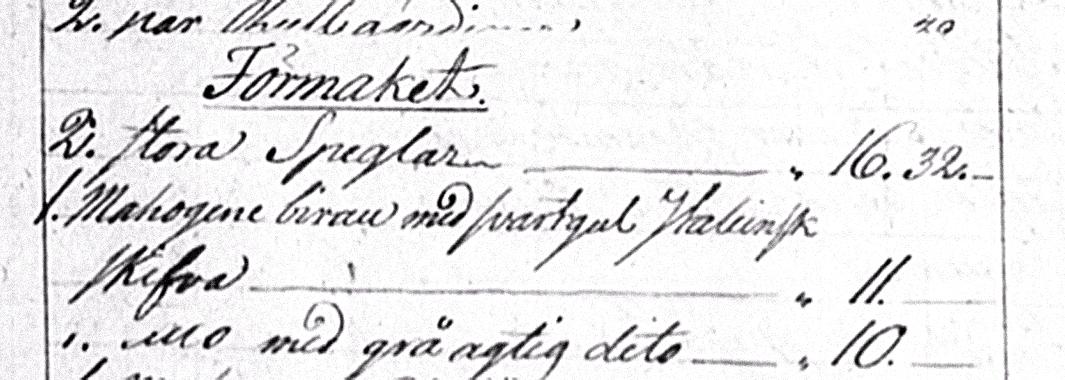 2. par Rullgardiner 20
Förmaket.
2. stora Speglar " 16. 32.
1. Mahogene birau med svartgul Italiensk
skifva " 11.
1. dito med gråagtig dito " 10.